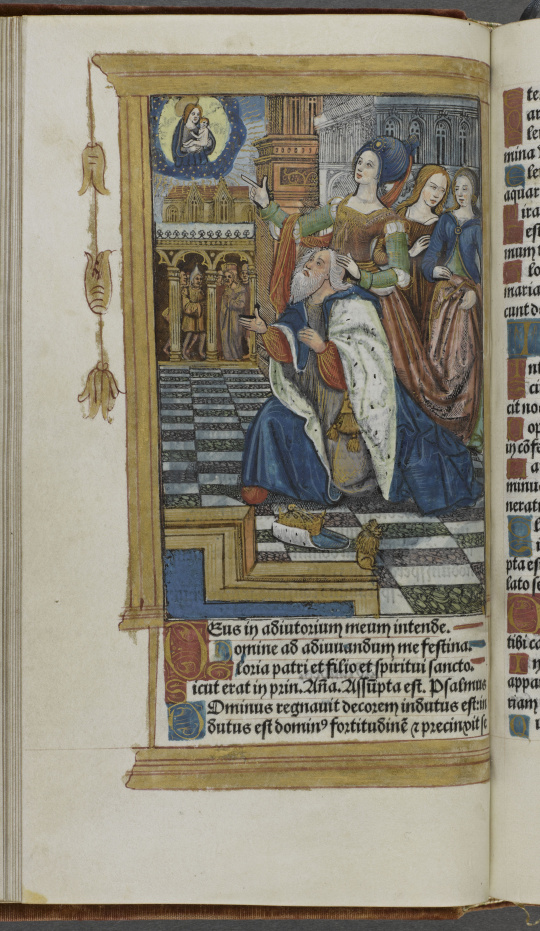 Eus in adiutorium meum intende.
omine ad adiuuandum me festina.
loria patri et filio et spiritui sancto.
icut erat in prin. Aña. Assūpta est. Psalmus
Ominus regnauit decorem indutus est: in
dutus est domin⁹ fortitudinē ⁊ precinxit se
te
ar
ser
mina
aquar
ira
est
mum
maria
cunt d
cit no
op
in cōfe
a
minu
nerat
pta es
lato se
tibi ca
appa
riam